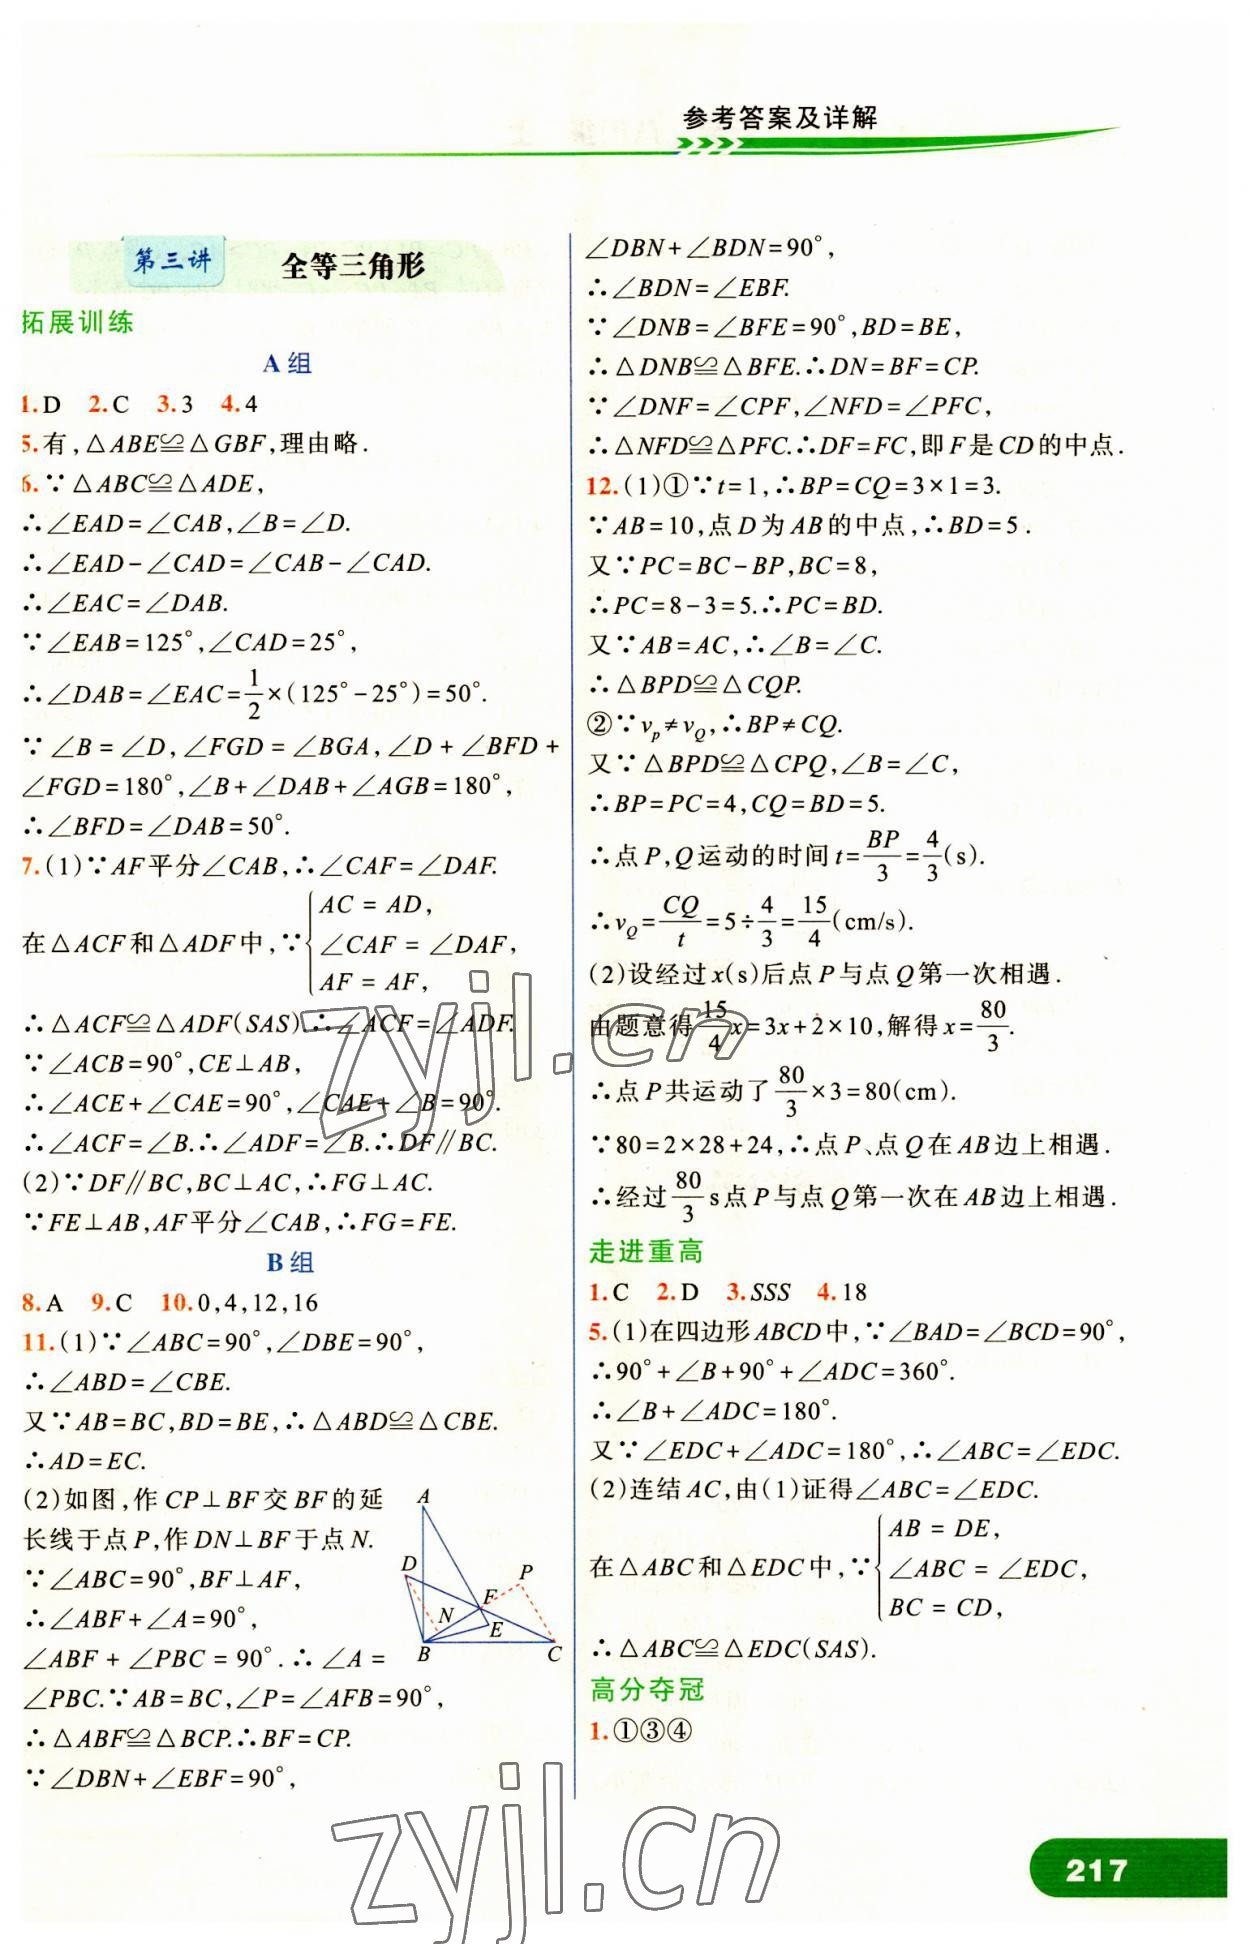 参考答案及详解
第三讲 全等三角形
拓展训练
A组
1.D 2.C 3.3 4.4
5.有,△ABE≌△GBF,理由略.
6.∵△ABC≌△ADE,
∴∠EAD=∠CAB,∠B=∠D.
∴∠EAD-∠CAD=∠CAB-∠CAD.
∴∠EAC=∠DAB.
∵∠EAB=125°,∠CAD=25°,
∴∠DAB=∠EAC=1/2×(125°-25°)=50°.
∵∠B=∠D,∠FGD=∠BGA,∠D+∠BFD+
∠FGD=180°,∠B+∠DAB+∠AGB=180°,
∴∠BFD=∠DAB=50°.
7.(1)∵AF平分∠CAB,∴∠CAF=∠DAF.
在△ACF和△ADF中,∵{AC=AD,
∠CAF=∠DAF,
AF=AF,
∴△ACF≌△ADF(SAS).∴∠ACF=∠ADF.
∵∠ACB=90°,CE⊥AB,
∴∠ACE+∠CAE=90°,∠CAE+∠B=90°.
∴∠ACF=∠B.∴∠ADF=∠B.∴DF∥BC.
(2)∵DF∥BC,BC⊥AC,∴FG⊥AC.
∵FE⊥AB,AF平分∠CAB,∴FG=FE.
B组
8.A 9.C 10.0,4,12,16
11.(1)∵∠ABC=90°,∠DBE=90°,
∴∠ABD=∠CBE.
又∵AB=BC,BD=BE,∴△ABD≌△CBE.
∴AD=EC.
(2)如图,作CP⊥BF交BF的延
长线于点P,作DN⊥BF于点N.
∵∠ABC=90°,BF⊥AF,
∴∠ABF+∠A=90°,
∠ABF+∠PBC=90°.∴∠A=
∠PBC.∵AB=BC,∠P=∠AFB=90°,
∴△ABF≌△BCP.∴BF=CP.
∵∠DBN+∠EBF=90°,
A
D
P
F
N
E
B
C
∠DBN+∠BDN=90°,
∴∠BDN=∠EBF.
∵∠DNB=∠BFE=90°,BD=BE,
∴△DNB≌△BFE.∴DN=BF=CP.
∵∠DNF=∠CPF,∠NFD=∠PFC,
∴△NFD≌△PFC.∴DF=FC,即F是CD的中点.
12.(1)①∵t=1,∴BP=CQ=3×1=3.
∵AB=10,点D为AB的中点,∴BD=5.
又∵PC=BC-BP,BC=8,
∴PC=8-3=5.∴PC=BD.
又∵AB=AC,∴∠B=∠C.
∴△BPD≌△CQP.
②∵vₚ≠v_Q,∴BP≠CQ.
又∵△BPD≌△CPQ,∠B=∠C,
∴BP=PC=4,CQ=BD=5.
∴点P,Q运动的时间t=BP/3=4/3(s).
∴v_Q=CQ/t=5÷4/3=15/4(cm/s).
(2)设经过x(s)后点P与点Q第一次相遇.
由题意得15/4x=3x+2×10,解得x=80/3.
∴点P共运动了80/3×3=80(cm).
∵80=2×28+24,∴点P、点Q在AB边上相遇.
∴经过80/3s点P与点Q第一次在AB边上相遇.
走进重高
1.C 2.D 3.SSS 4.18
5.(1)在四边形ABCD中,∵∠BAD=∠BCD=90°,
∴90°+∠B+90°+∠ADC=360°.
∴∠B+∠ADC=180°.
又∵∠EDC+∠ADC=180°,∴∠ABC=∠EDC.
(2)连结AC,由(1)证得∠ABC=∠EDC.
在△ABC和△EDC中,∵{AB=DE,
∠ABC=∠EDC,
BC=CD,
∴△ABC≌△EDC(SAS).
高分夺冠
1.①③④
zyjl.cn
zyjl.cn
217